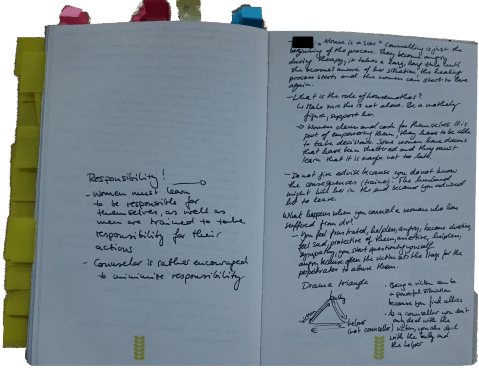 Responsibility!
- Women must learn
to be responsible for
themselves, as well as
men are trained to take
responsibility for their
actions
- Counselor is rather encouraged
to minimize responsibility
Counselling is just the
beginning of the process. They become angry
during therapy, it takes a long, long time until
she becomes aware of her situation, the healing
process starts and the women can start to live
again.
- What is the role of housemothers?
Make sure she is not alone. Be a motherly
figure, support her
Women clean and cook for themselves. It is
part of empowering them, they have to be able
to take decisions. Some women have dreams
that have been shattered and they must
learn that it is maybe not too late.
- Do not give advise because you do not know
the consequences (trainer). The husband
might kill her in the end because you advised
her to leave.
What happens when you counsel a woman who has
suffered from dv?
- You feel frustrated, helpless, angry, become directive,
feel sad, protective of them, helpless,
sympathy, you start questioning yourself
angry because often the victim
perpetrator to abuse them.
Drama triangle
bully
victim
helper
(not counsellor)
. Being a victim can be
a powerful situation
because you find allies
. As a counsellor you don't
only deal with the
victim, you also deal
with the bully and
the helper